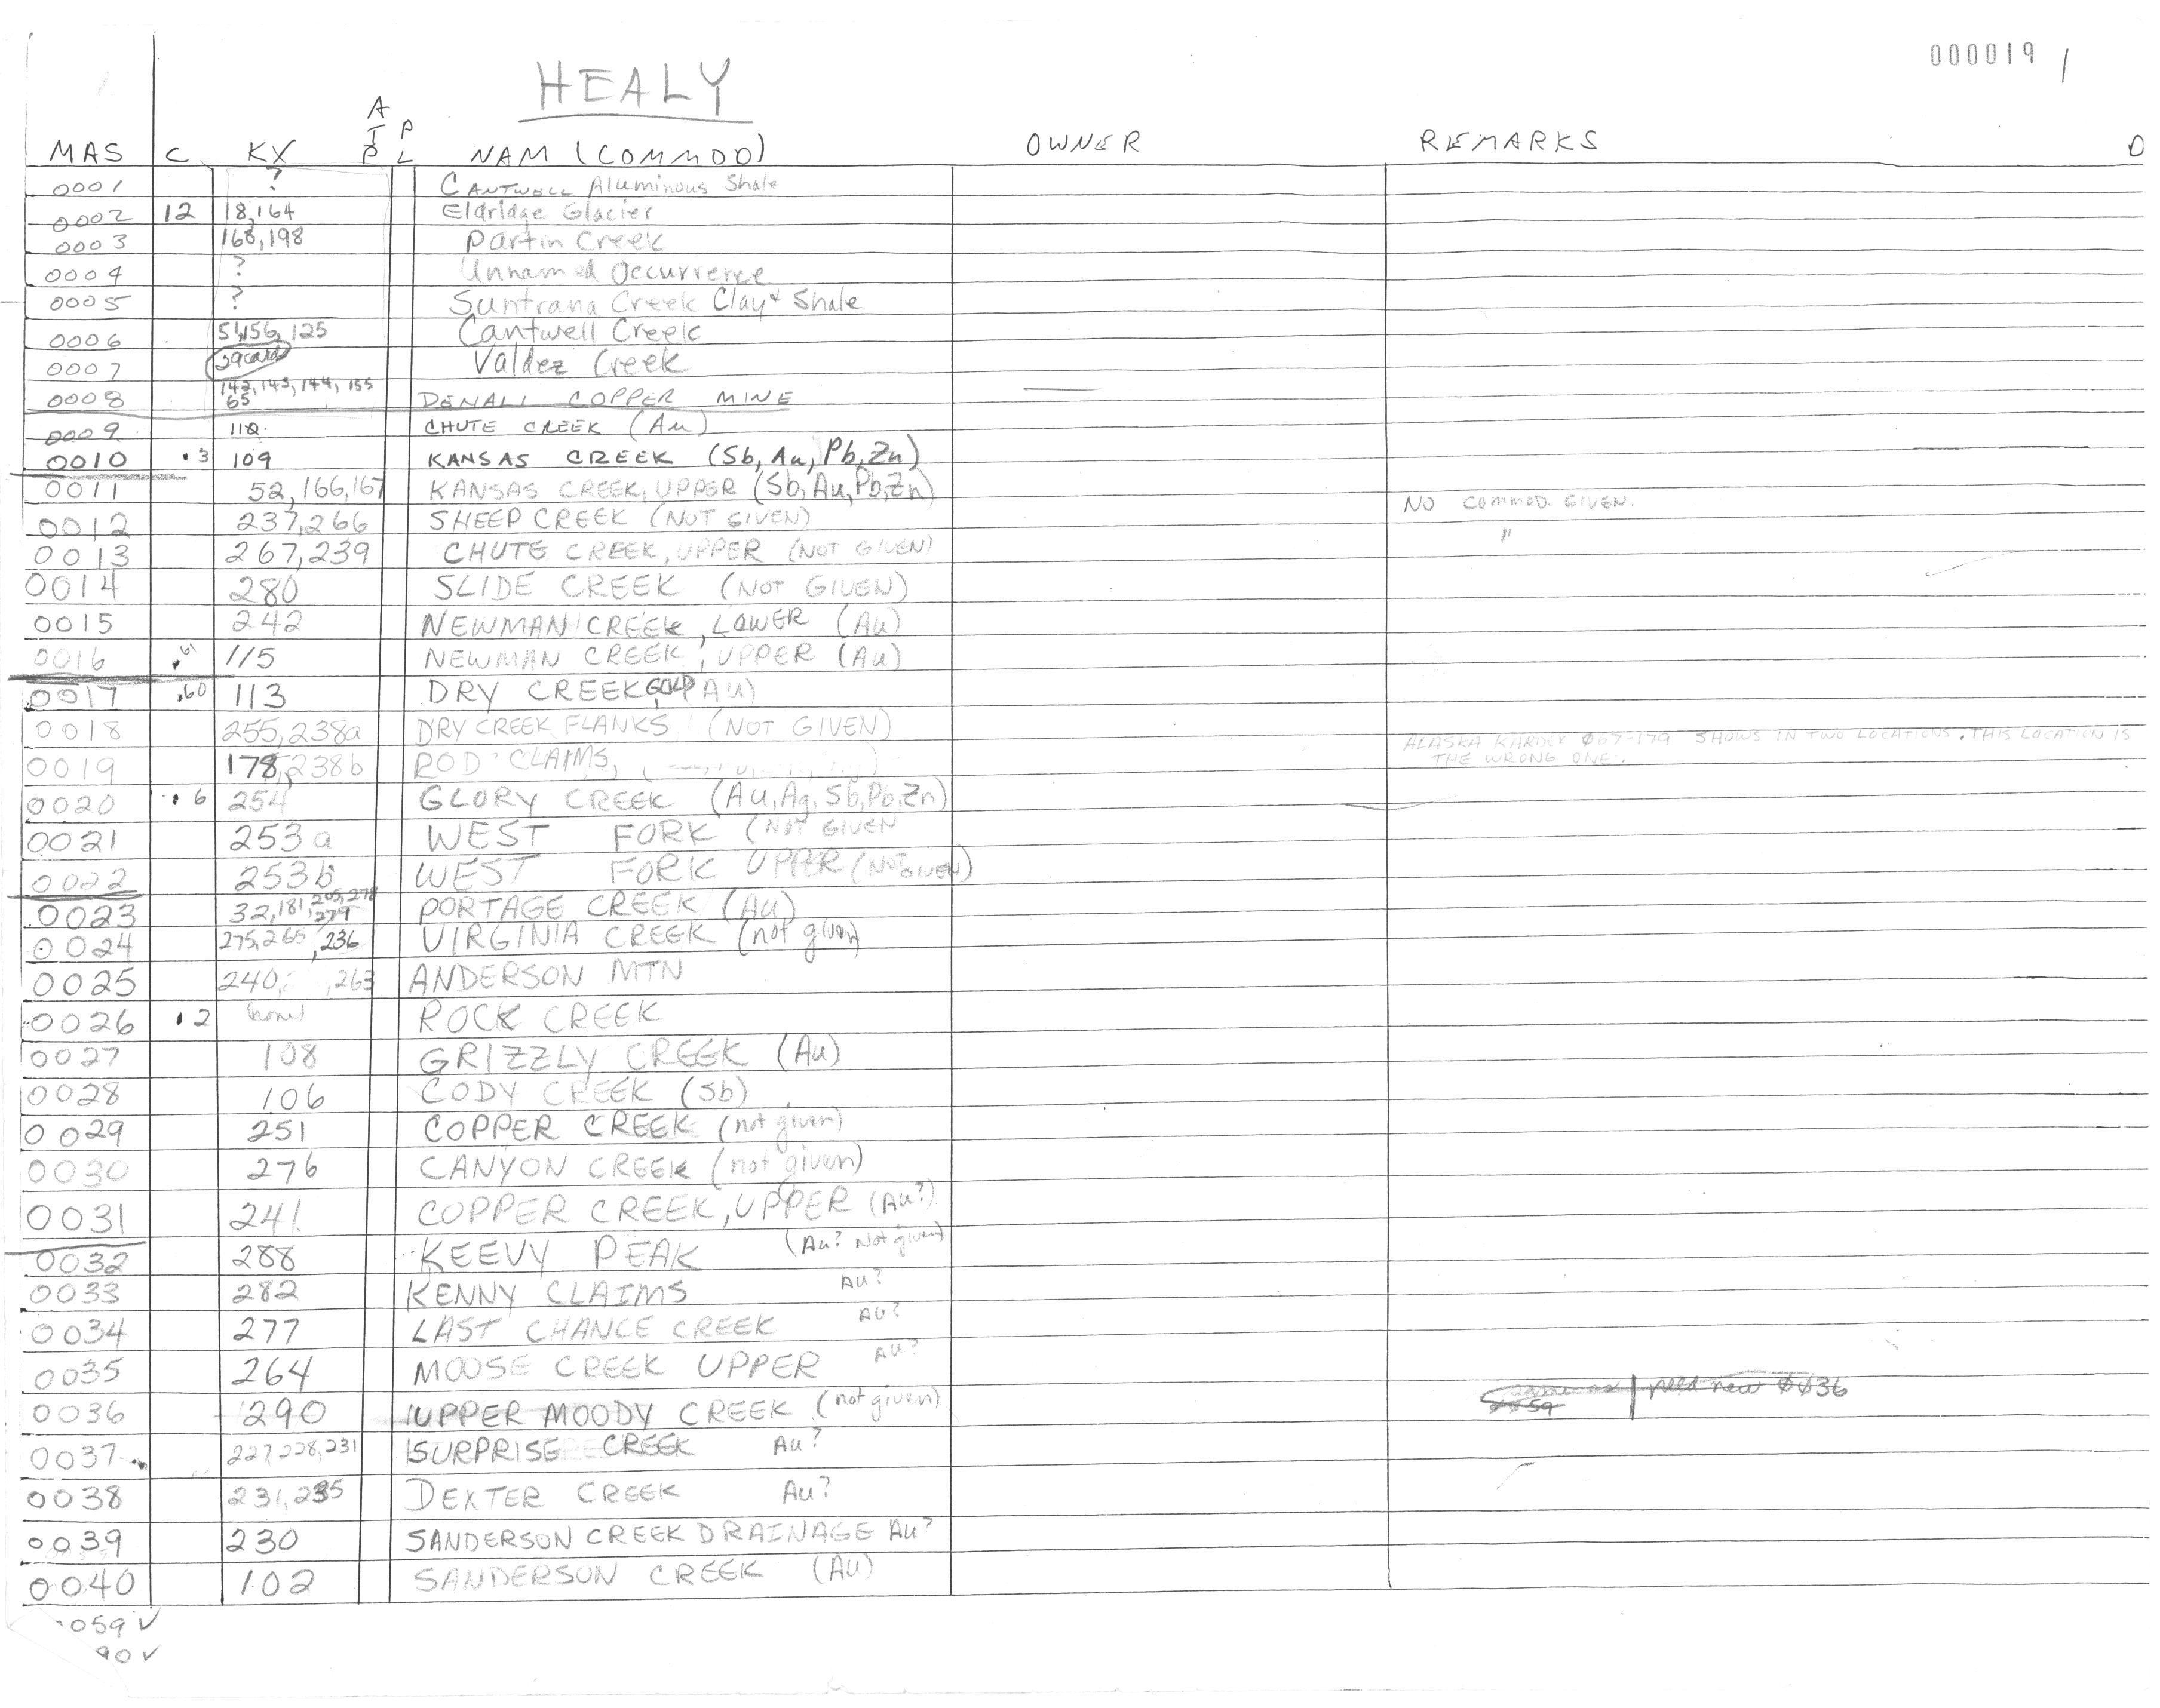 000019 /
HEALY
MAS C KX ATP PL NAM (COMMOD) OWNER REMARKS D
0001 ? CANTWELL Aluminous Shale
0002 12 18,164 Eldridge Glacier
0003 168,198 Partin Creek
0004 ? Unnamed Occurrence
0005 ? Suntrana Creek Clay + Shale
0006 125 Cantwell Creek
0007 Valdez Creek
0008 142, 143, 144, 155 65 DENALI COPPER MINE
0009 CHUTE CREEK (Au)
0010 .3 109 KANSAS CREEK (Sb, Au, Pb, Zn)
0011 52, 166, 167 KANSAS CREEK, UPPER (Sb, Au, Pb, Zn)
0012 237,266 SHEEP CREEK (NOT GIVEN) NO COMMOD. GIVEN.
0013 267,239 CHUTE CREEK, UPPER (NOT GIVEN) "
0014 280 SLIDE CREEK (NOT GIVEN)
0015 242 NEWMAN CREEK, LOWER (Au)
0016 115 NEWMAN CREEK, UPPER (Au)
0017 .60 113 DRY CREEK GOLD AU)
0018 255, 238a DRY CREEK FLANKS (NOT GIVEN)
0019 178, 238b ROD CLAIMS, ALASKA KARDEX 067-179 SHOWS IN TWO LOCATIONS. THIS LOCATION IS
THE WRONG ONE.
0020 .6 254 GLORY CREEK (Au, Ag, Sb, Pb, Zn)
0021 253a WEST FORK (NOT GIVEN
0022 253b WEST FORK UPPER (NOT GIVEN)
0023 32, 181, 205, 278 279 PORTAGE CREEK (Au)
0024 275, 265, 236 VIRGINIA CREEK (not given)
0025 240, ,263 ANDERSON MTN
0026 .2 (none) ROCK CREEK
0027 108 GRIZZLY CREEK (Au)
0028 106 CODY CREEK (Sb)
0029 251 COPPER CREEK (not given)
0030 276 CANYON CREEK (not given)
0031 241 COPPER CREEK, UPPER (Au?)
0032 288 KEEVY PEAK (Au? Not given)
0033 282 KENNY CLAIMS Au?
0034 277 LAST CHANCE CREEK Au?
0035 264 MOOSE CREEK UPPER Au?
0036 290 UPPER MOODY CREEK (not given) same as 59 need new 0036
0037 227, 228, 231 SURPRISE CREEK Au?
0038 231, 235 DEXTER CREEK Au?
0039 230 SANDERSON CREEK DRAINAGE Au?
0040 102 SANDERSON CREEK (Au)
059 ✓
90 ✓